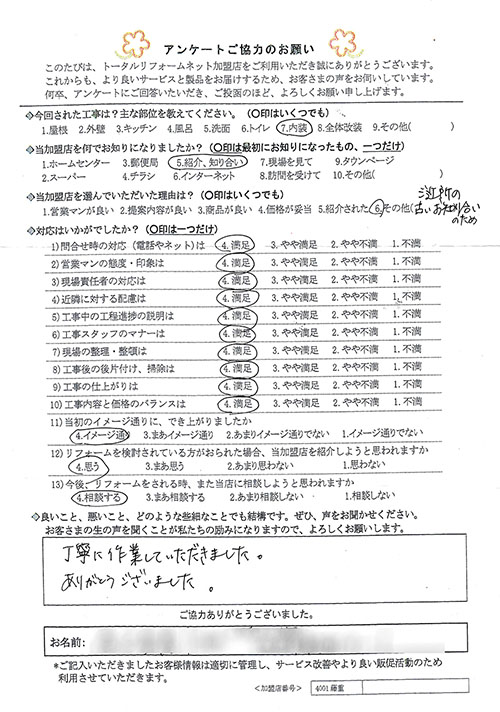 アンケートご協力のお願い
このたびは、トータルリフォームネット加盟店をご利用いただき誠にありがとうございます。
これからも、より良いサービスと製品をお届けするため、お客さまの声をお伺いしています。
何卒、アンケートにご回答いただいき、ご投函のほど、よろしくお願い申し上げます。
◆今回された工事は?主な部位を教えてください。(〇印はいくつでも)
1.屋根 2.外壁 3.キッチン 4.風呂 5.洗面 6.トイレ 7.内装 8.全体改装 9.その他( )
◆当加盟店を何でお知りになりましたか?(〇印は最初にお知りになったもの、一つだけ)
1.ホームセンター 3.郵便局 5.紹介、知り合い 7.現場を見て 9.タウンページ
2.スーパー 4.チラシ 6.インターネット 8.訪問を受けて 10.その他( )
◆当加盟店を選んでいただいた理由は?(〇印はいくつでも)
1.営業マンが良い 2.提案内容が良い 3.商品が良い 4.価格が妥当 5.紹介された 6.その他(
近所の
古いお知り合い
のため
◆対応はいかがでしたか?(〇印は一つだけ)
1)問合せ時の対応(電話やネット)は 4.満足 3.やや満足 2.やや不満 1.不満
2)営業マンの態度・印象は 4.満足 3.やや満足 2.やや不満 1.不満
3)現場責任者の対応は 4.満足 3.やや満足 2.やや不満 1.不満
4)近隣に対する配慮は 4.満足 3.やや満足 2.やや不満 1.不満
5)工事中の工程進捗の説明は 4.満足 3.やや満足 2.やや不満 1.不満
6)工事スタッフのマナーは 4.満足 3.やや満足 2.やや不満 1.不満
7)現場の整理・整頓は 4.満足 3.やや満足 2.やや不満 1.不満
8)工事後の後片付け、掃除は 4.満足 3.やや満足 2.やや不満 1.不満
9)工事の仕上がりは 4.満足 3.やや満足 2.やや不満 1.不満
10)工事内容と価格のバランスは 4.満足 3.やや満足 2.やや不満 1.不満
11)当初のイメージ通りに、でき上がりましたか
4.イメージ通り 3.まあイメージ通り 2.あまりイメージ通りでない 1.イメージ通りでない
12)リフォームを検討されている方がおられた場合、当加盟店を紹介しようと思われますか
4.思う 3.まあ思う 2.あまり思わない 1.思わない
13)今後、リフォームをされる時、また当店に相談しようと思われますか
4.相談する 3.まあ相談する 2.あまり相談しない 1.相談しない
◆良いこと、悪いこと、どのような些細なことでも結構です。ぜひ、声をお聞かせください。
お客さまの生の声を聞くことが私たちの励みになりますので、よろしくお願いします。
丁寧に作業していただきました。
ありがとうございました。
ご協力ありがとうございました。
お名前:
*ご記入いただきましたお客様情報は適切に管理し、サービス改善やより良い販促活動のため
利用させていただきます。
<加盟店番号> 4001 藤重